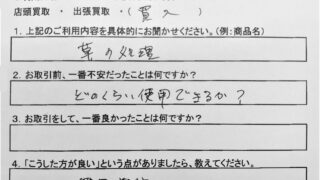 店頭買取 ・ 出張買取 ・(買入)
1. 上記のご利用内容を具体的にお聞かせください。(例:商品名)
草の処理
2. お取引前、一番不安だったことは何ですか?
どのくらい使用できるか?
3. お取引をして、一番良かったことは何ですか?
4. 「こうした方が良い」という点がありましたら、教えてください。